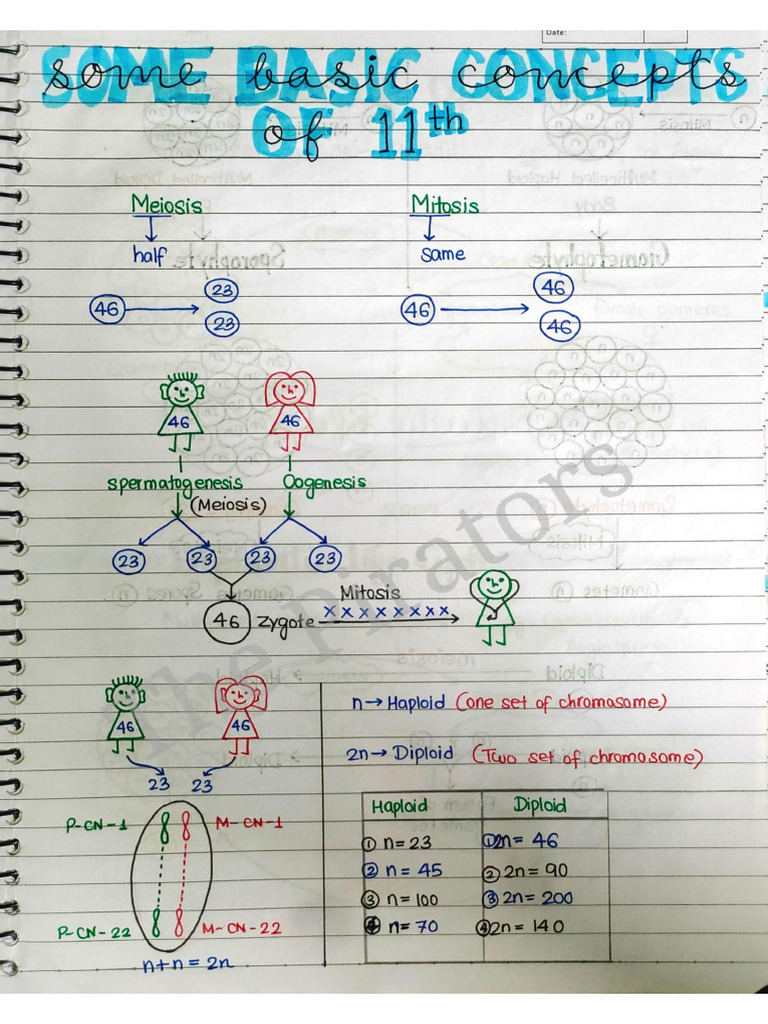 Date:
SOME BASIC CONCEPTS
OF 11th
Meiosis Mitosis
half same
46 23 23 46 46 46
46 46
spermatogenesis Oogenesis
(Meiosis)
23 23 23 23
Mitosis
46 zygote xxxxxxxx
46 46
23 23
P-CN-1 M-CN-1
P-CN-22 M-CN-22
n+n = 2n
n → Haploid (one set of chromosome)
2n → Diploid (Two set of chromosome)
Haploid Diploid
① n = 23 ① 2n = 46
② n = 45 ② 2n = 90
③ n = 100 ③ 2n = 200
④ n = 70 ④ 2n = 140
The Pirators